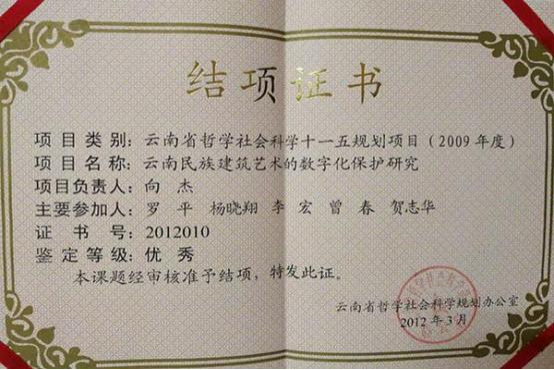 结项证书
项目类别：云南省哲学社会科学十一五规划项目（2009年度）
项目名称：云南民族建筑艺术的数字化保护研究
项目负责人：向 杰
主要参加人：罗 平 杨晓翔 李 宏 曾 春 贺志华
证 书 号：2012010
鉴定等级：优 秀
本课题经审核准予结项，特发此证。
云南省哲学社会科学规划办公室
2012年3月